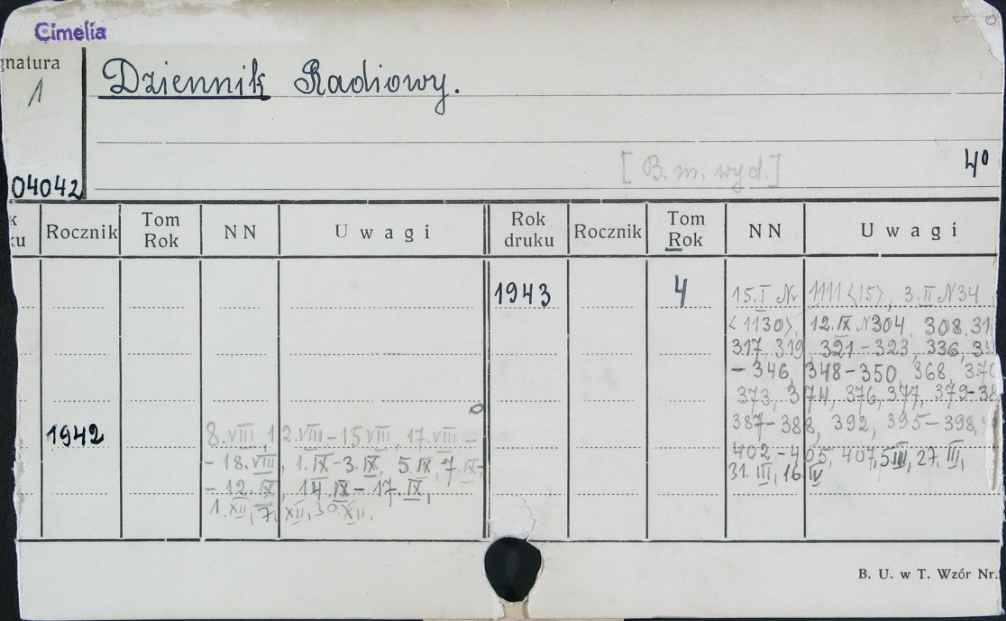 Cimelia
gnatura
1
Dziennik Radiowy.
[B. m. wyd.]
4°
04042
Rocznik Tom Rok NN Uwagi Rok druku Rocznik Tom Rok NN Uwagi
1943 4 15.I Nr 1111 <15>, 3.II N34
<1130>, 12.IX N304, 308, 31
317, 319, 321-323, 336,
-346, 348-350, 368, 370
373, 374, 376, 377, 379-38
387-388, 392, 395-398,
402-405, 407, 5III, 27.III,
31.III, 16 IV
1942 8.VIII, 12.VIII-15VIII, 17.VIII-
-18.VIII, 1.IX-3.IX, 5.IX, 7.IX-
-12.IX, 14.IX-17.IX,
1.XII, 7.XII, 30.XII.
B. U. w T. Wzór Nr.